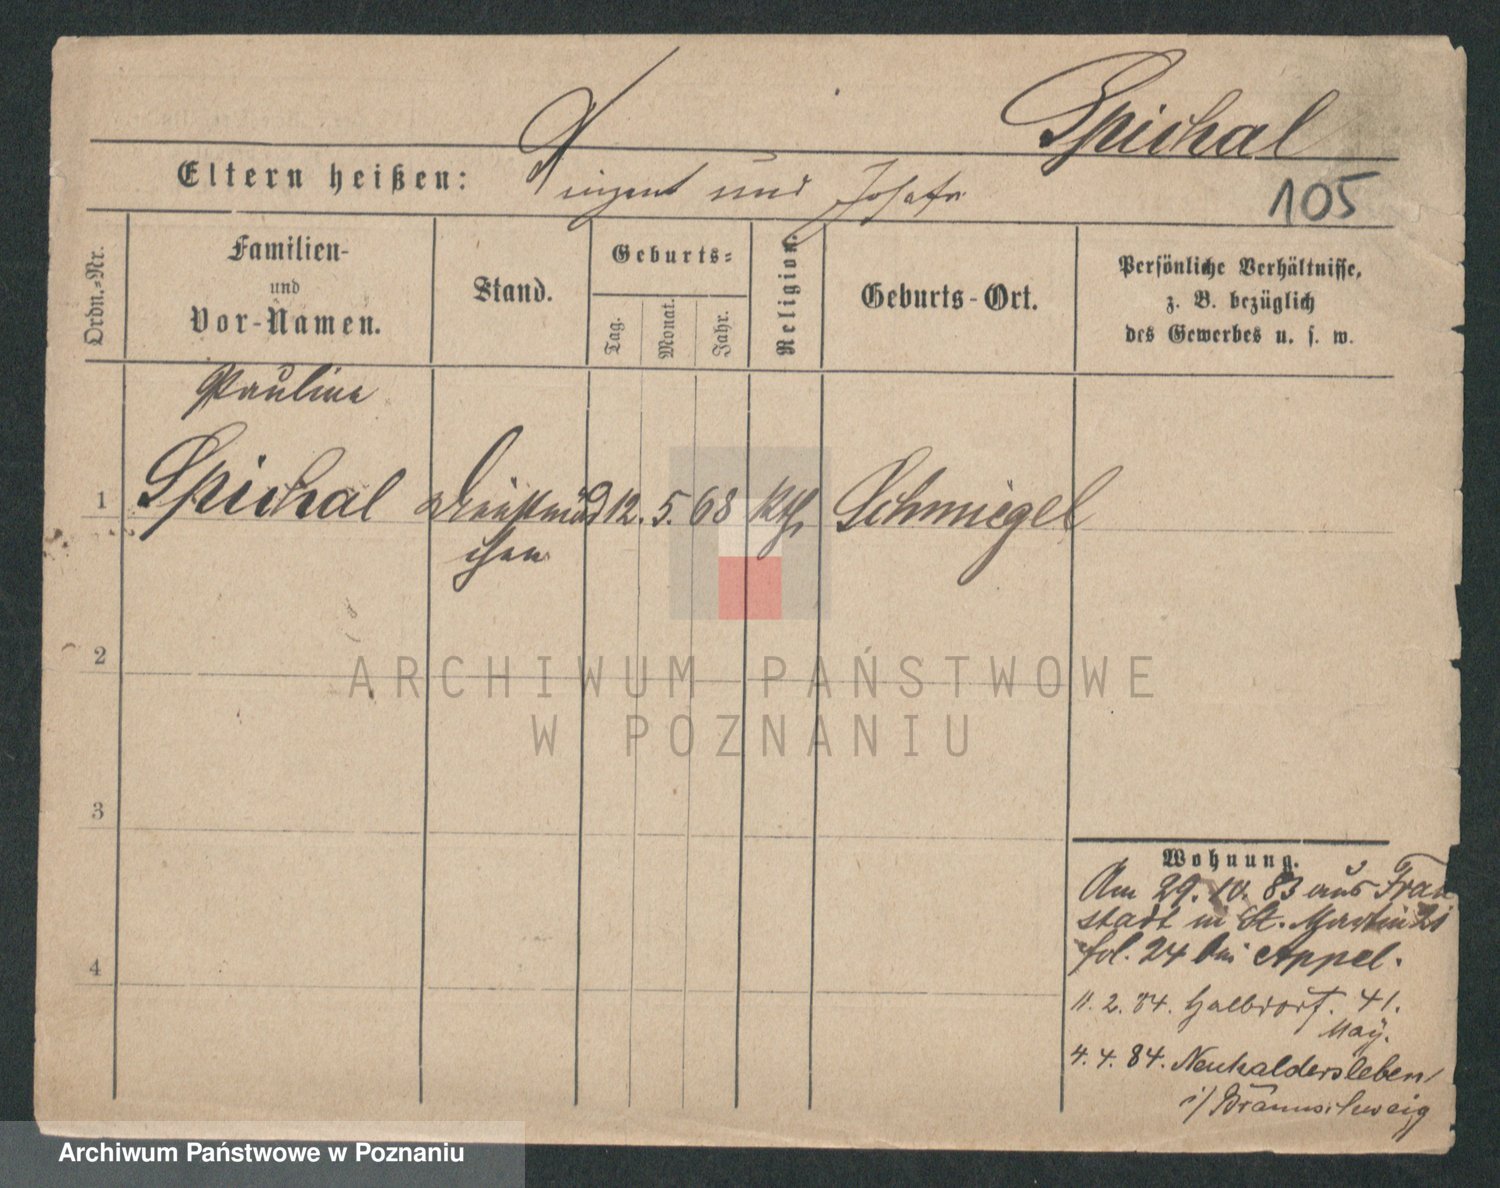 Spichal
Eltern heißen: Vinzent und Josefa
105
Ordn.-Nr.
Familien-
und
Vor-Namen.
Stand.
Geburts-
Tag.
Monat.
Jahr.
Religion.
Geburts-Ort.
Persönliche Verhältnisse,
z. B. bezüglich
des Gewerbes u. s. w.
Pauline
1 Spichal Dienstmäd 12. 5. 68 kth Schmiegel
chen
2
ARCHIWUM PAŃSTWOWE
W POZNANIU
3
Wohnung.
Am 29. 10. 83 aus Frau
stadt in St. Martin 21
fol. 24 bei Appel.
4
11. 2. 84. Halbdorf. 41.
May.
4. 4. 84. Neuhaldersleben
i/ Braunschweig
Archiwum Państwowe w Poznaniu